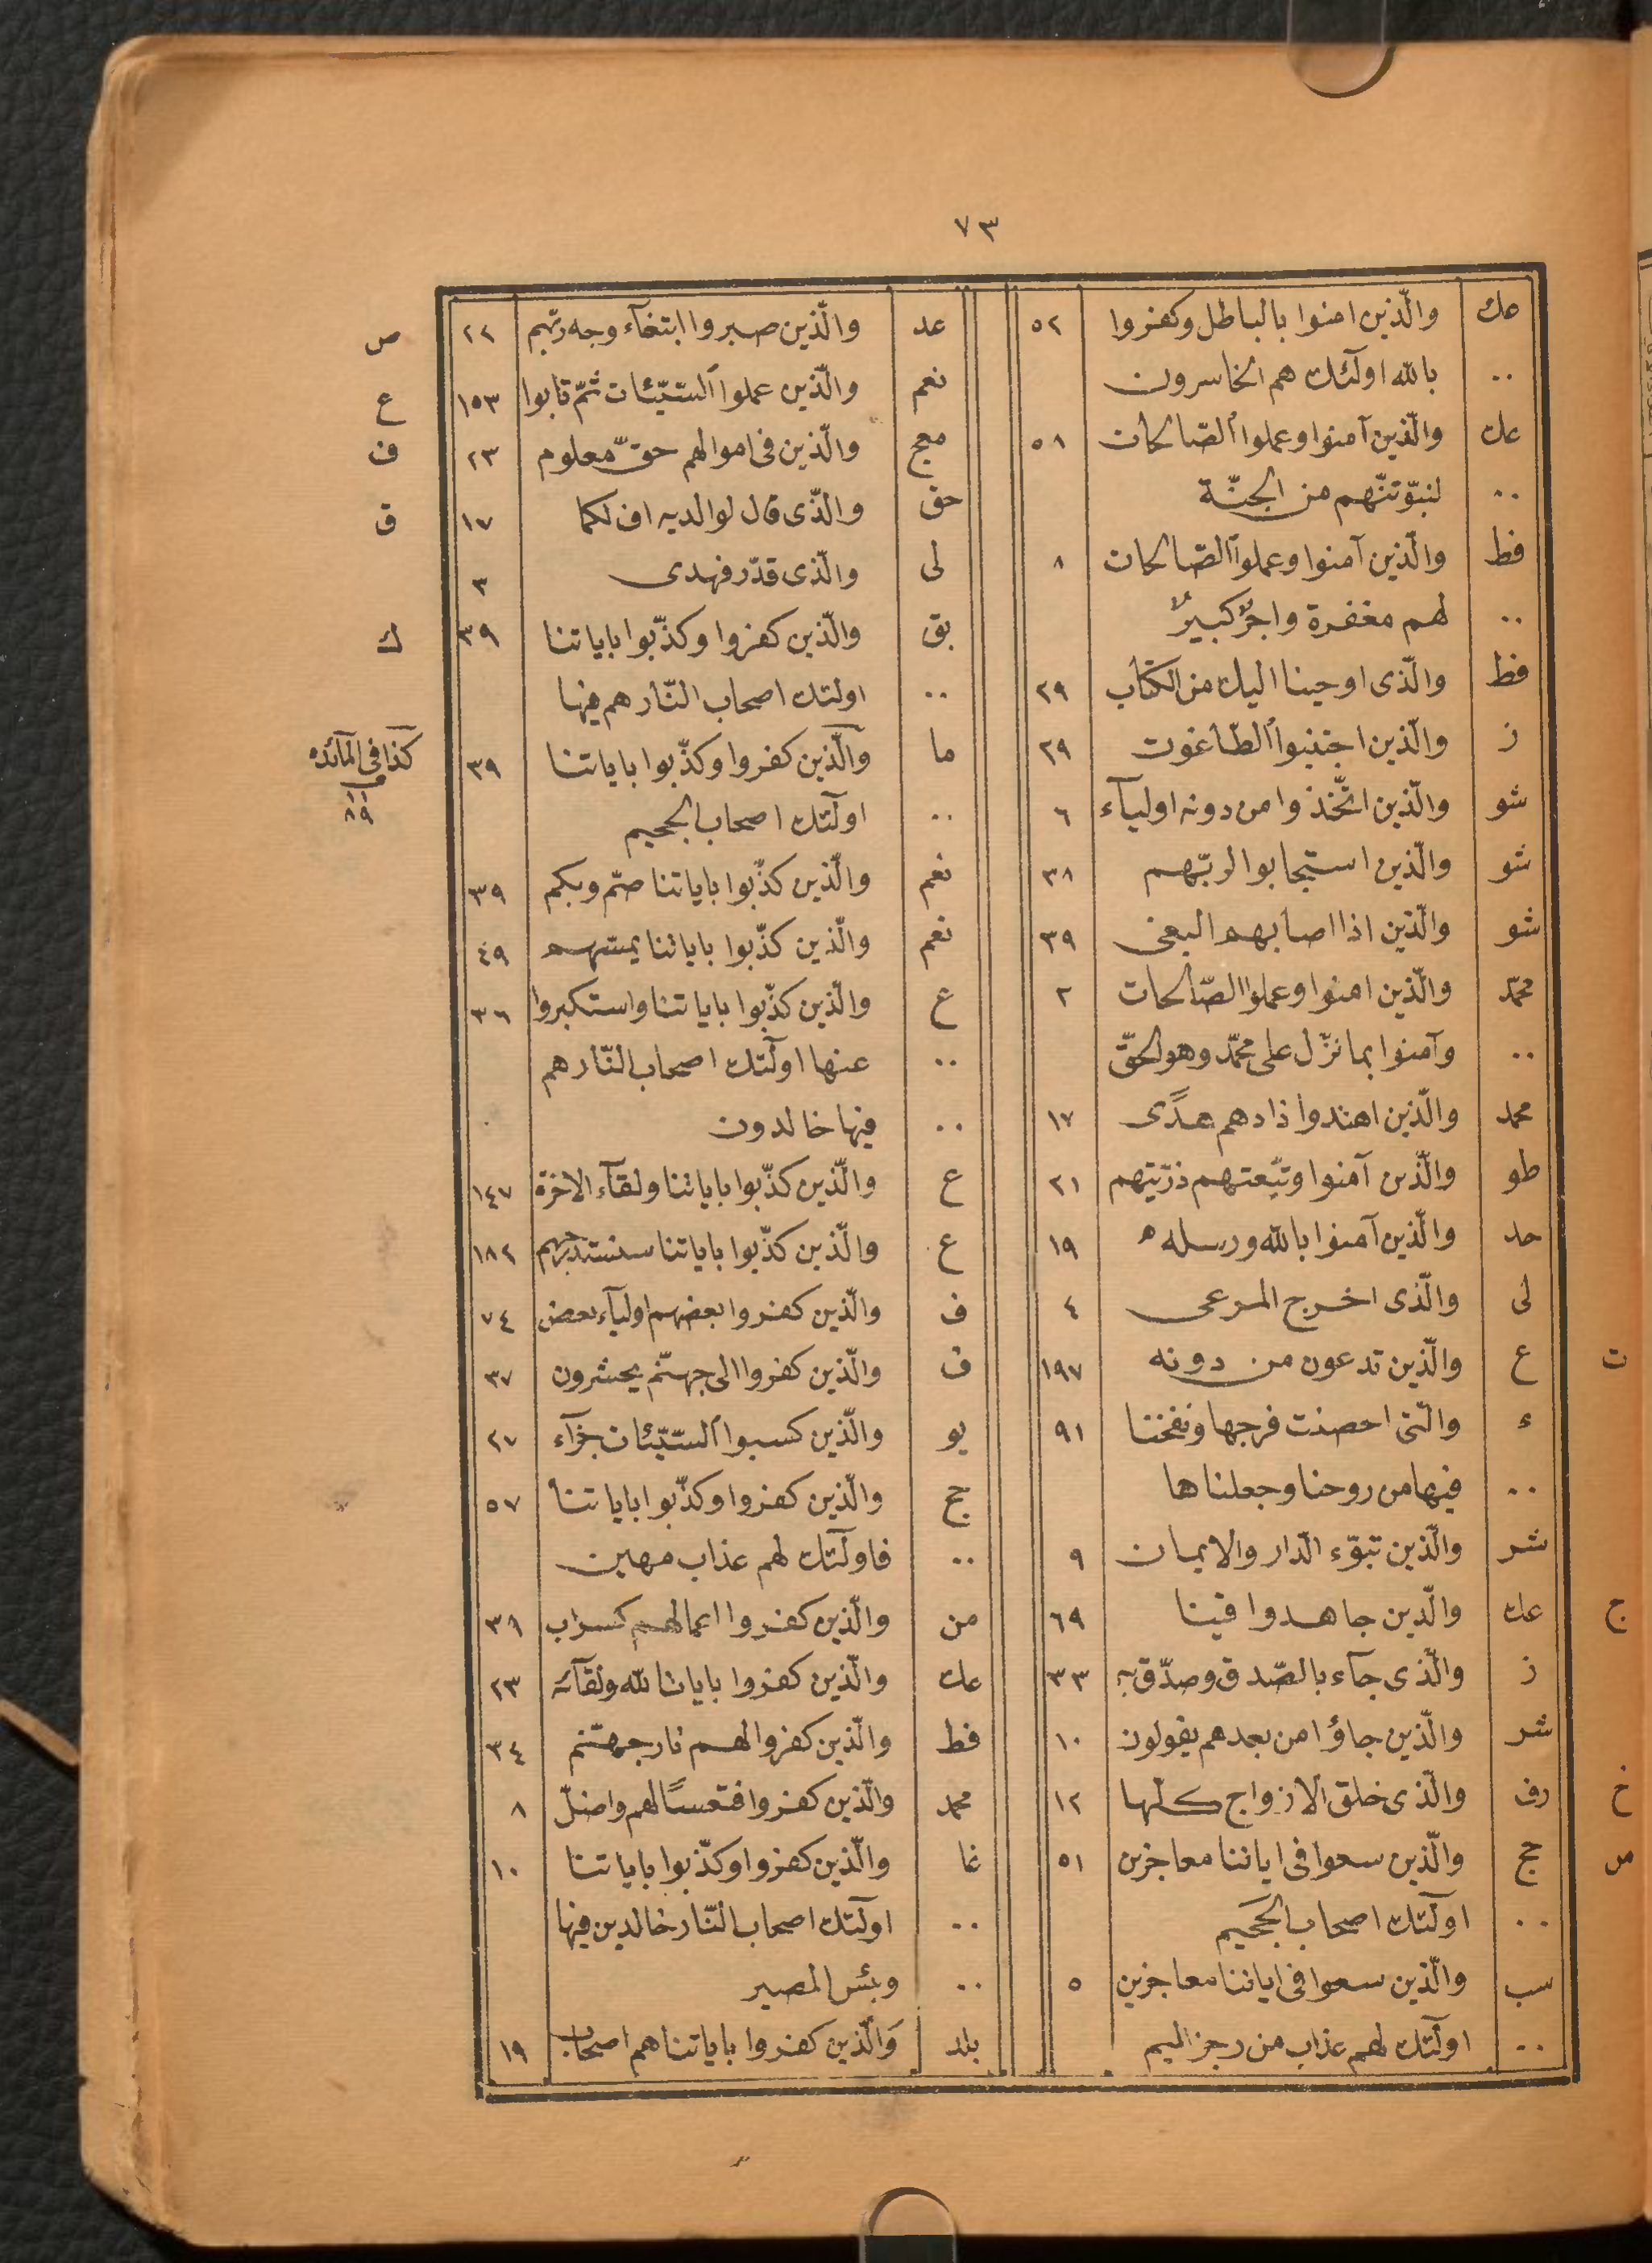 ٧٣
عك والّذين امنوا بالباطل وكفروا ٥٢
.. بالله اولئك هم الخاسرون
عك والّذين آمنوا وعملوا الصّالحات ٥٨
.. لنبوّئنّهم من الجنّة
فط والّذين آمنوا وعملوا الصّالحات ٨
.. لهم مغفرة واجرٌ كبيرٌ
فط والّذى اوحينا اليك من الكتاب ٢٩
ز والّذين اجتنبوا الطّاغوت ٢٩
شو والّذين اتّخذوا من دونه اوليآء ٦
شو والّذين استجابوا لربّهم ٣٨
شو والّذين اذا اصابهم البغى ٣٩
محمّد والّذين امنوا وعملوا الصّالحات ٢
.. وآمنوا بما نزّل على محمّد وهو الحقّ
محمد والّذين اهتدوا زادهم هدًى ١٧
طو والّذين آمنوا وتبّعتهم ذرّيتهم ٢١
حد والّذين آمنوا بالله ورسله ١٩
لى والّذى اخرج المرعى ٤
ت ع والّذين تدعون من دونه ١٩٧
ء والّتى احصنت فرجها ونفخنا ٩١
.. فيها من روحنا وجعلناها
شر والّذين تبوّء الدّار والايمان ٩
ج عك والّذين جاهدوا فينا ٦٩
ز والّذى جآء بالصّدق وصدّق به ٣٣
شر والّذين جاؤا من بعدهم يقولون ١٠
خ رف والّذى خلق الازواج كلّها ١٢
س حج والّذين سعوا فى اياتنا معاجزين ٥١
.. اولئك اصحاب الجحيم
سب والّذين سعوا فى اياتنا معاجزين ٥
.. اولئك لهم عذاب من رجز اليم
عد والّذين صبروا ابتغآء وجه ربّهم ٢٢ ص
نعم والّذين عملوا السّيّئات ثمّ تابوا ١٥٣ ع
معج والّذين فى اموالهم حقّ معلوم ٢٣ ف
حق والّذى قال لوالديه اف لكما ١٧ ق
لى والّذى قدّر فهدى ٣
بق والّذين كفروا وكذّبوا باياتنا ٣٩ ك
.. اولئك اصحاب النّار هم فيها
ما والّذين كفروا وكذّبوا باياتنا ٣٩ كذا فى المآئده
.. اولئك اصحاب الجحيم
نعم والّذين كذّبوا باياتنا صمّ وبكم ٣٩
نعم والّذين كذّبوا باياتنا يمسّهم ٤٩
ع والّذين كذّبوا باياتنا واستكبروا ٣٦
.. عنها اولئك اصحاب النّار هم
.. فيها خالدون
ع والّذين كذّبوا باياتنا ولقآء الاخرة ١٤٧
ع والّذين كذّبوا باياتنا سنستدرجهم ١٨٢
ف والّذين كفروا بعضهم اوليآء بعض ٧٤
ف والّذين كفروا الى جهنّم يحشرون ٣٧
يو والّذين كسبوا السّيّئات جزآء ٢٧
حج والّذين كفروا وكذّبوا باياتنا ٥٧
.. فاولئك لهم عذاب مهين
من والّذين كفروا اعمالهم كسراب ٣٩
عك والّذين كفروا بايات الله ولقآئه ٢٣
فط والّذين كفروا لهم نار جهنّم ٣٤
محمد والّذين كفروا فتعسًا لهم واضلّ ٨
غا والّذين كفروا وكذّبوا باياتنا ١٠
.. اولئك اصحاب النّار خالدين فيها
.. وبئس المصير
بلد والّذين كفروا باياتنا هم اصحاب ١٩